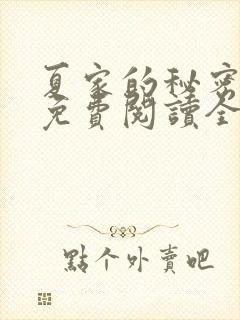 夏家的秘密
免費閱讀全
點个外賣吧